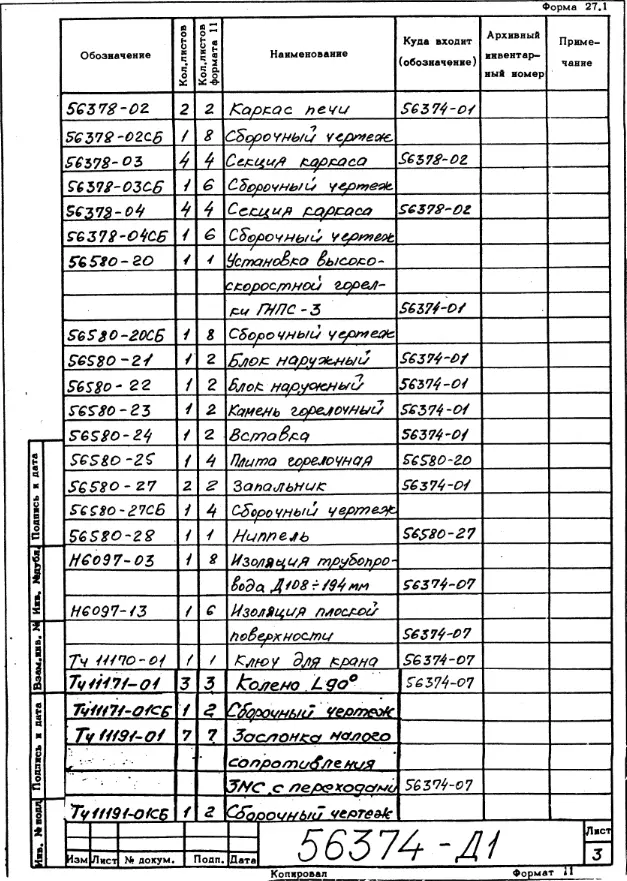 Форма 27.1
Обозначение Кол.листов Кол.листов формата 11 Наименование Куда входит (обозначение) Архивный инвентарный номер Примечание
56378-02 2 2 Каркас печи 56374-01
56378-02СБ 1 8 Сборочный чертеж
56378-03 4 4 Секция каркаса 56378-02
56378-03СБ 1 6 Сборочный чертеж
56378-04 4 4 Секция каркаса 56378-02
56378-04СБ 1 6 Сборочный чертеж
56580-20 1 1 Установка высоко-
скоростной горел-
ки ГНПС-3 56374-01
56580-20СБ 1 8 Сборочный чертеж
56580-21 1 2 Блок наружный 56374-01
56580-22 1 2 Блок наружный 56374-01
56580-23 1 2 Камень горелочный 56374-01
56580-24 1 2 Вставка 56374-01
56580-25 1 4 Плита горелочная 56580-20
56580-27 2 2 Запальник 56374-01
56580-27СБ 1 4 Сборочный чертеж
56580-28 1 1 Ниппель 56580-27
Н6097-03 1 8 Изоляция трубопро-
вода Д108÷194мм 56374-07
Н6097-13 1 6 Изоляция плоской
поверхности 56374-07
Тч 11170-01 1 1 Ключ для крана 56374-07
Тч 11171-01 3 3 Колено L90° 56374-07
Тч 11171-01СБ 1 2 Сборочный чертеж
Тч 11191-01 7 7 Заслонка малого
сопротивления
ЗМС с переходами 56374-07
Тч 11191-01СБ 1 2 Сборочный чертеж
Подпись и дата
Инв. №дубл.
Взам.инв. №
Подпись и дата
Инв. №подл
Изм Лист № докум. Подп. Дата
56374-Д1
Лист
3
Копировал Формат 11